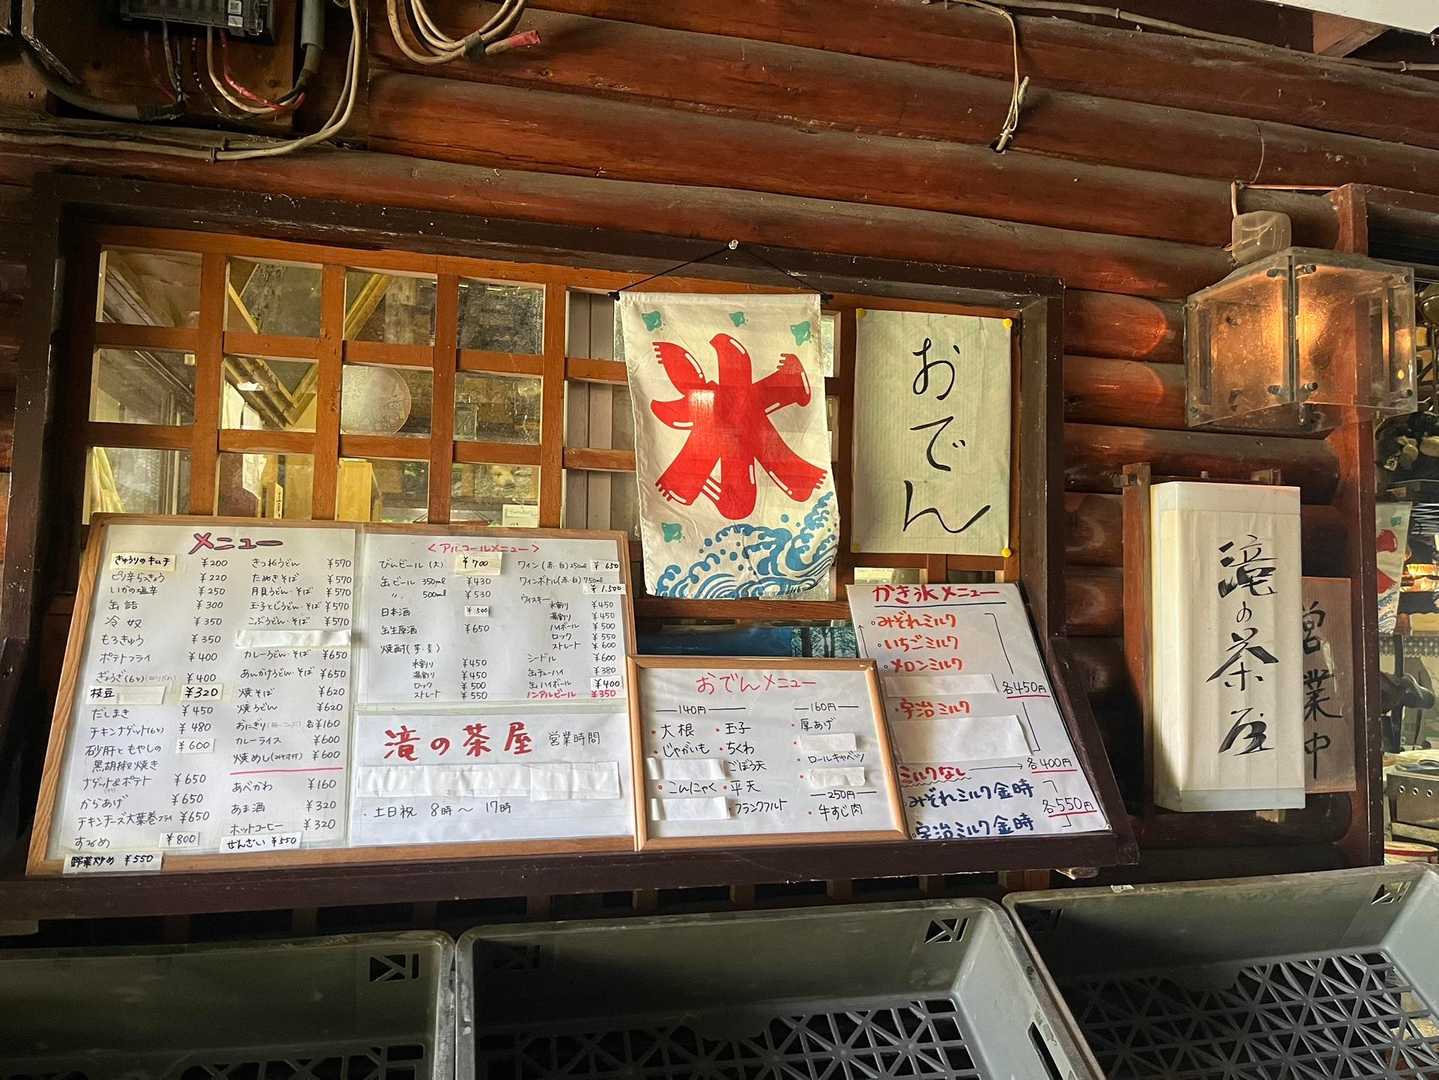 氷
おでん
滝の茶屋
営業中
メニュー
きゅうりのキムチ ¥200
ピリ辛らっきょう ¥220
いかの塩辛 ¥250
缶詰 ¥300
冷奴 ¥350
もろきゅう ¥350
ポテトフライ ¥400
ぎょうざ(6ヶ) ¥400
枝豆 ¥320
だしまき ¥450
チキンナゲット(6ヶ) ¥480
砂肝ともやしの
黒胡椒焼き ¥600
ナゲット&ポテト ¥650
からあげ ¥650
チキンチーズ大葉巻フライ ¥650
するめ ¥800
野菜炒め ¥550
きつねうどん ¥570
たぬきそば ¥570
月見うどん・そば ¥570
玉子とじうどん・そば ¥570
こぶうどん・そば ¥570
カレーうどん・そば ¥650
あんかけうどん・そば ¥650
焼そば ¥620
焼うどん ¥620
おにぎり 各¥160
カレーライス ¥600
焼めし ¥600
あべかわ ¥160
あま酒 ¥320
ホットコーヒー ¥320
ぜんざい ¥550
<アルコールメニュー>
びんビール(大) ¥700
缶ビール 350ml ¥430
〃 500ml ¥530
日本酒 ¥500
缶生原酒 ¥650
焼酎(芋・麦)
水割り ¥450
湯割り ¥450
ロック ¥500
ストレート ¥550
ワイン(赤・白)250ml ¥650
ワインボトル(赤・白)750ml
¥1,500
ウィスキー
水割り ¥450
湯割り ¥450
ハイボール ¥500
ロック ¥550
ストレート ¥600
シードル ¥600
缶チューハイ ¥380
缶ハイボール ¥400
ノンアルビール ¥350
滝の茶屋 営業時間
・土日祝 8時〜17時
おでんメニュー
140円
・大根
・じゃがいも
・こんにゃく
・玉子
・ちくわ
・ごぼう天
・平天
・フランクフルト
160円
・厚あげ
・ロールキャベツ
250円
・牛すじ肉
かき氷メニュー
・みぞれミルク
・いちごミルク
・メロンミルク
各450円
・宇治ミルク
ミルクなし 各400円
・みぞれミルク金時
各550円
・宇治ミルク金時